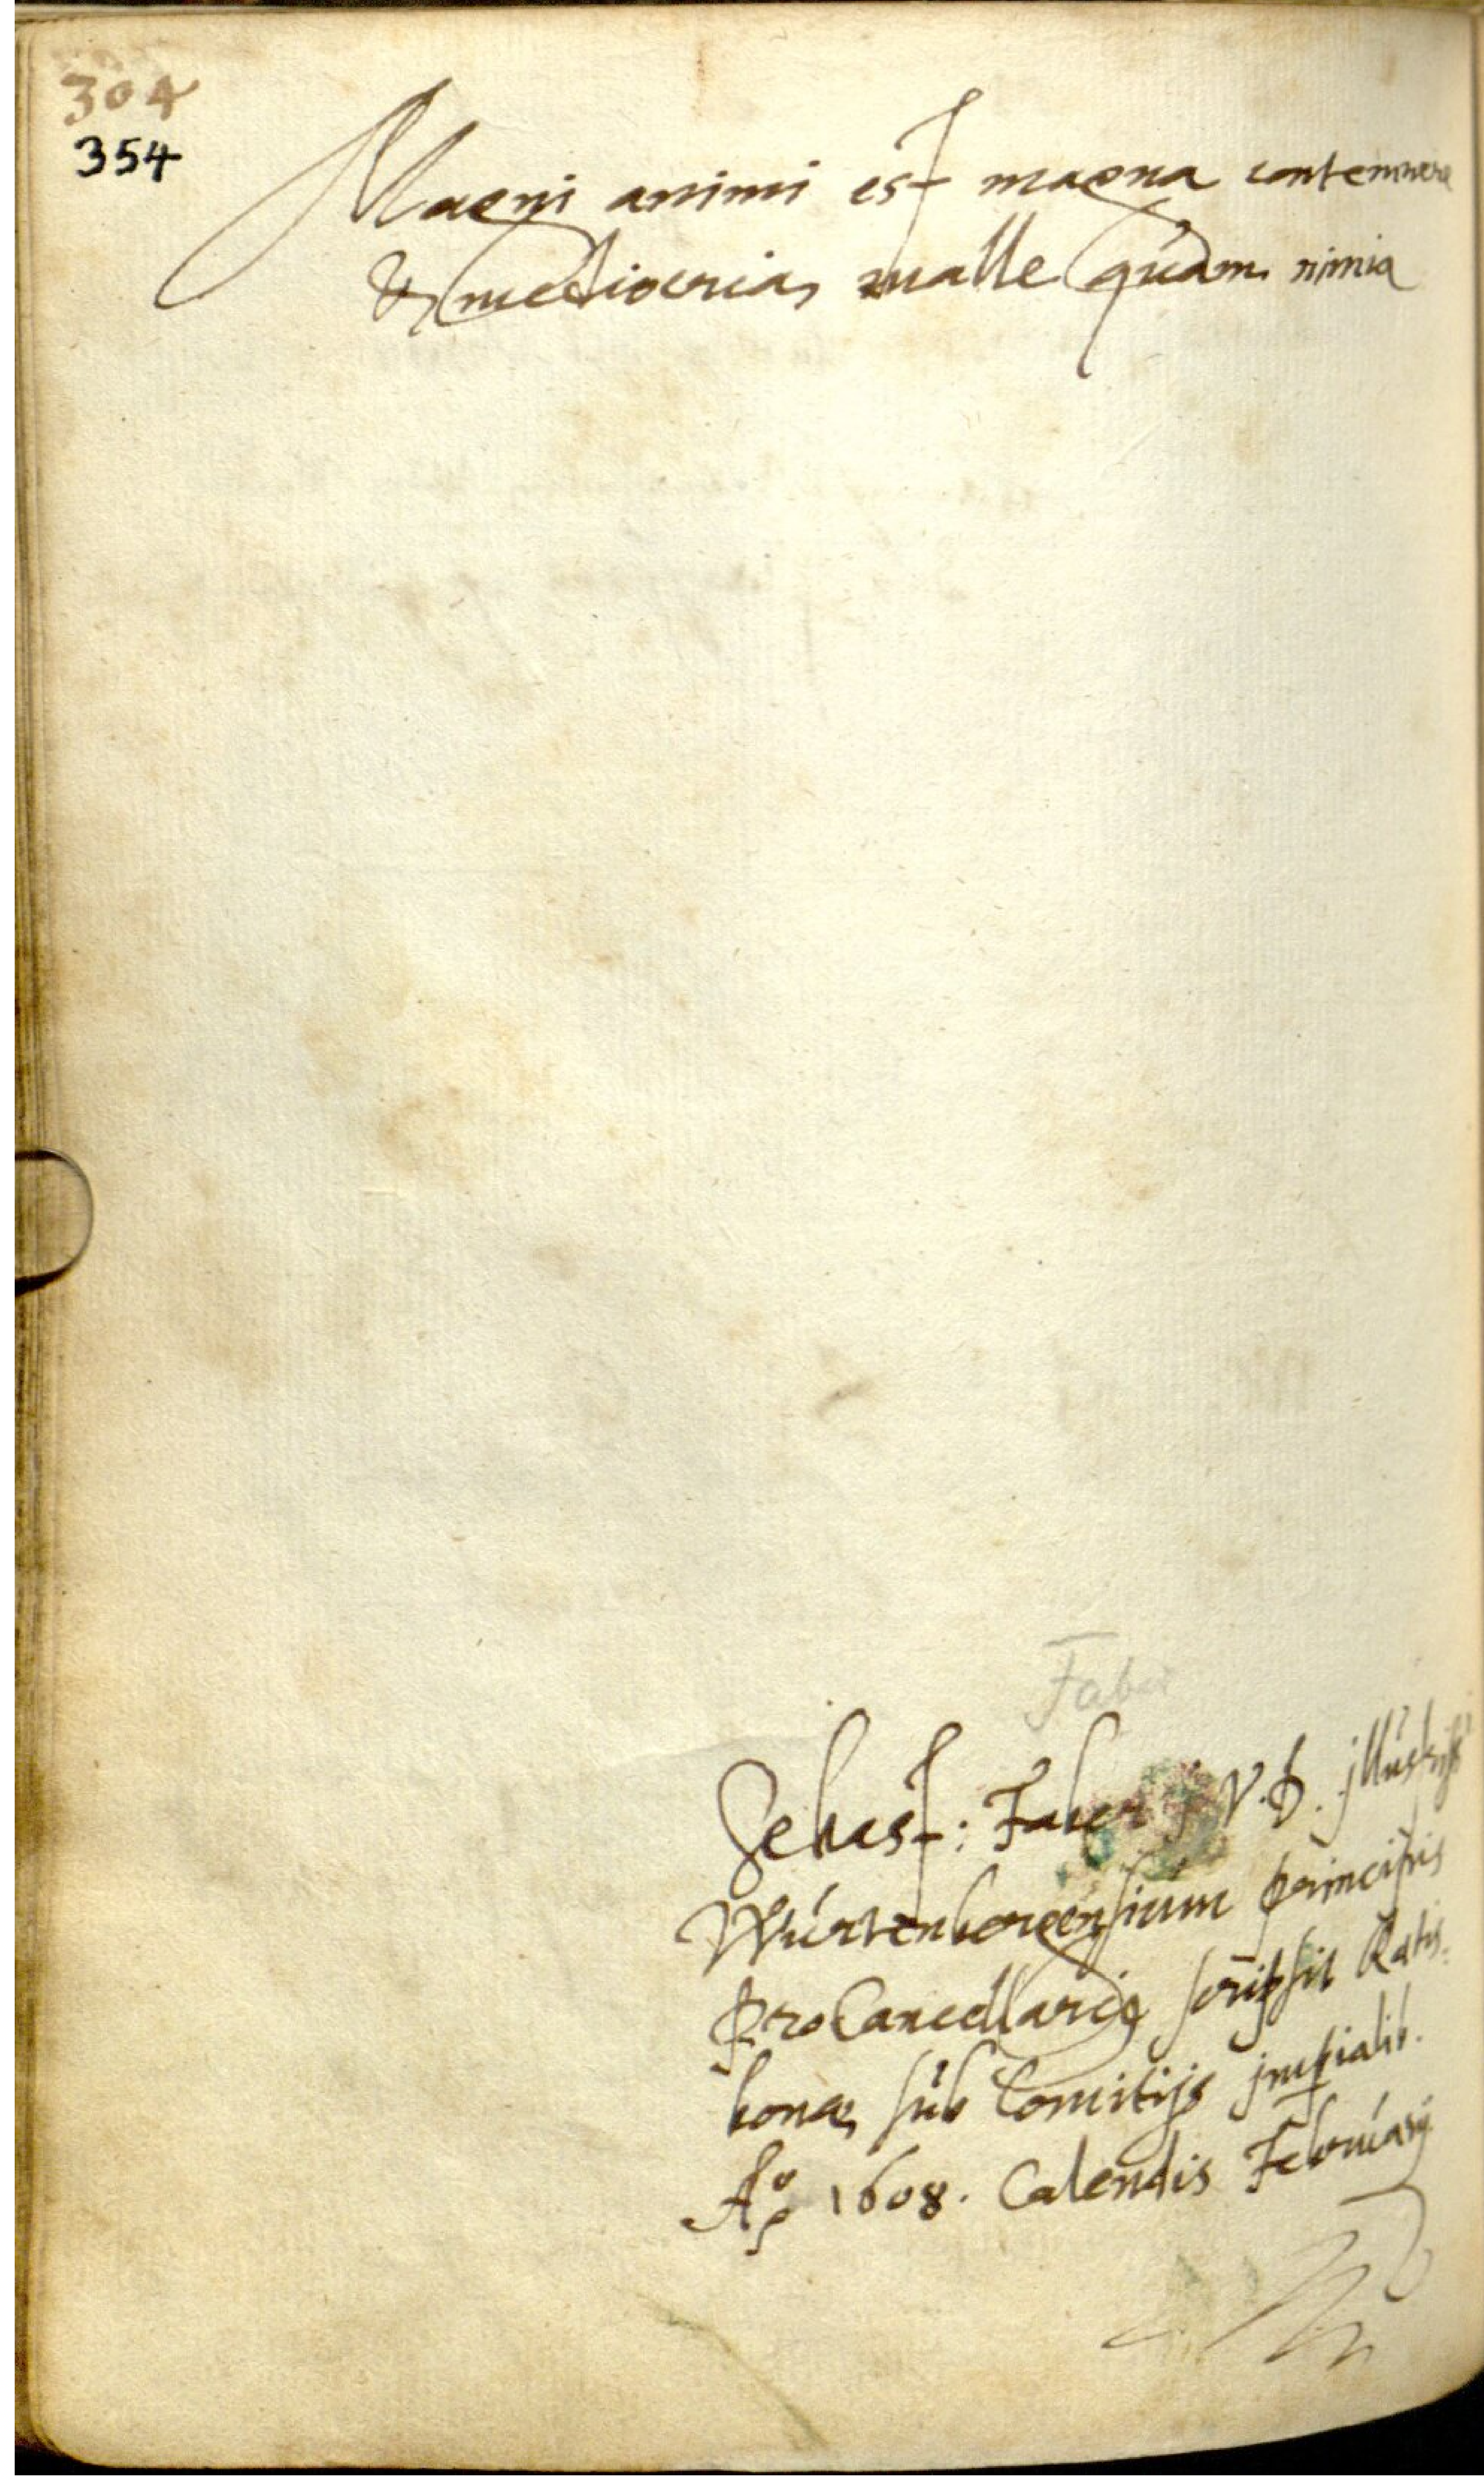 304
354
Magni animi est magna contemnere
& mediocria malle quam nimia
Faber
Sebast: Faber j. V. D. jllustriss
Würtenbergensium principis
ProCancellari9 scripsit Ratis
bonae sub Comitijs jmperialib.
A° 1608. Calendis Februarij